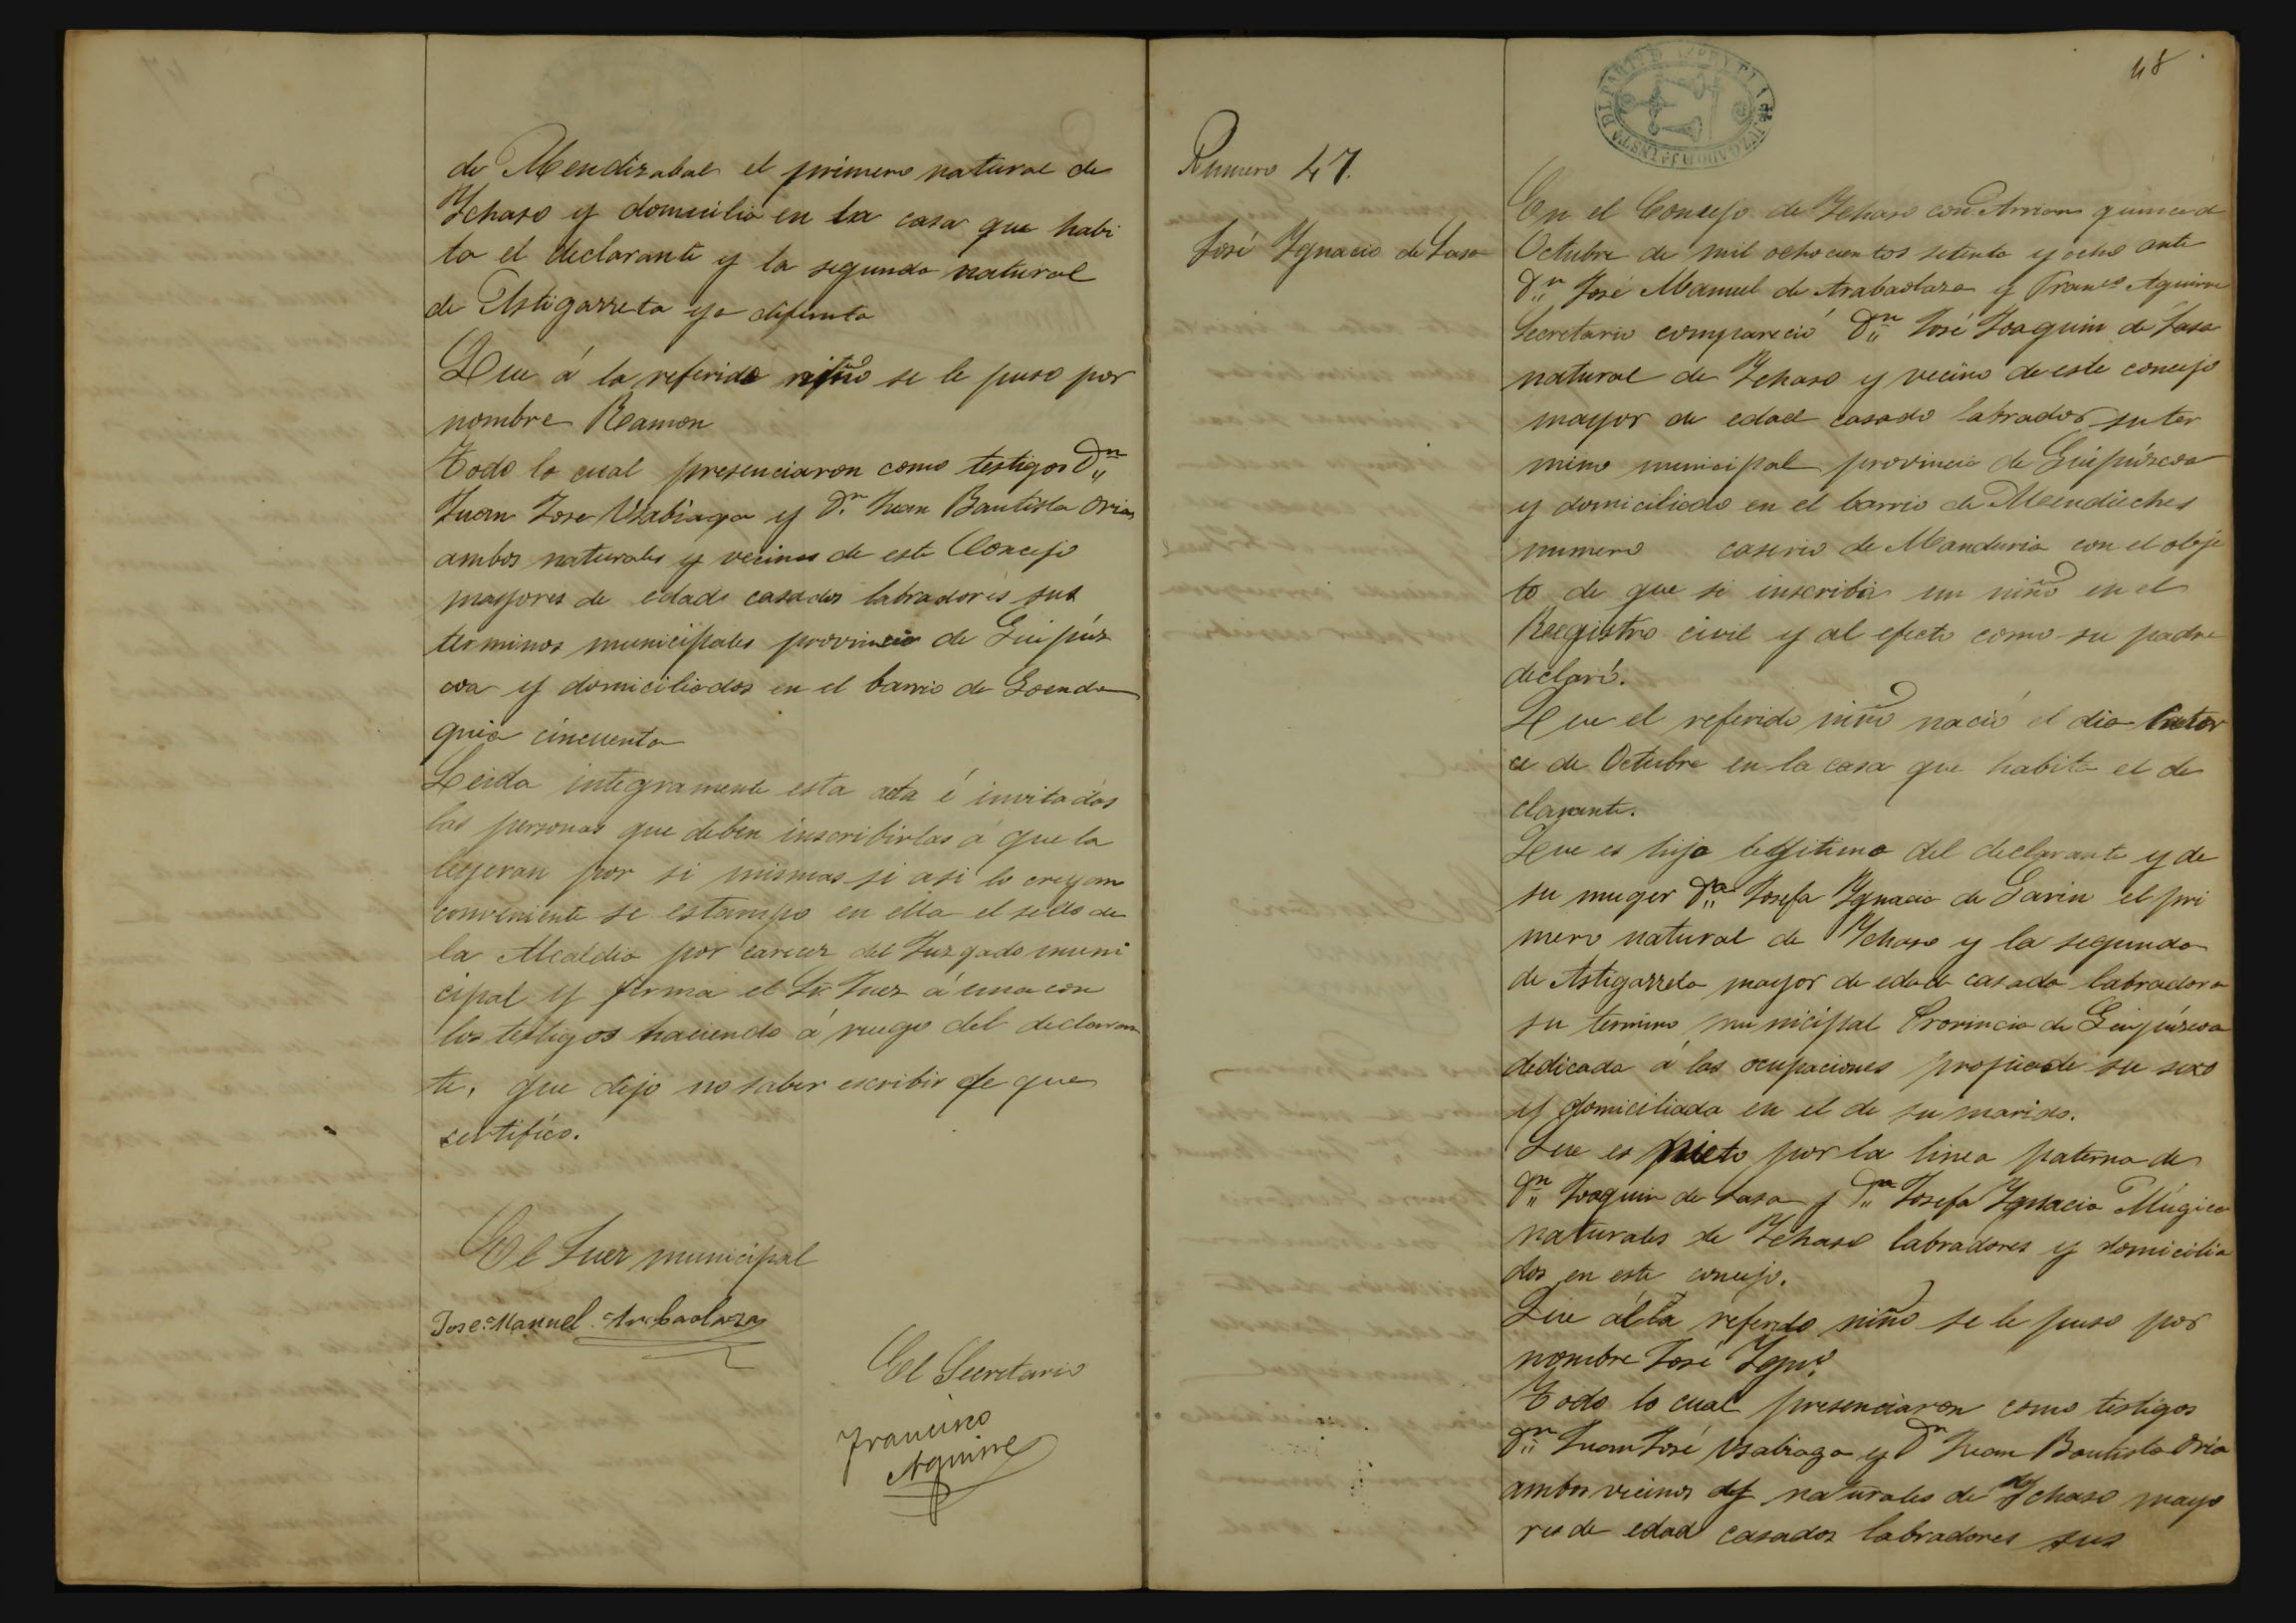 de Mendizabal el primero natural de
Ychaso y domicilio en la casa que habi
ta el declarante y la segunda natural
de Astigarreta ya difunta
Que á la referida niño se le puso por
nombre Ramon
Todo lo cual presenciaron como testigos Dn
Juan Jose Usabiaga y Dn Juan Bautista Oria
ambos naturales y vecinos de este Concejo
mayores de edad casados labradores sus
terminos municipales provincia de Guipúz
coa y domiciliados en el barrio de
cincuenta
Leida integramente esta acta é invitados
las personas que deben inscribirlas á que la
leyeran por si mismas si asi lo creyan
conveniente se estampo en ella el sello de
la Alcaldia por carecer del Juzgado muni
cipal y firma el Sr. Juez á una con
los testigos haciendo á ruego del declaran
te, que dijo no saber escribir de que
certifico.
El Juez municipal
Jose Manuel Arabaolaza
El Secretario
Francisco
Aguirre
48
Numero 47.
José Ygnacio de Lasa
En el Concejo de Ychaso con Arriaran quince d
Octubre de mil ochocientos setenta y ocho ante
Dn José Manuel de Arabaolaza y Franco Aguirre
Secretario compareció Dn José Joaquin de Lasa
natural de Ychaso y vecino de este concejo
mayor de edad casado labrador su ter
mino municipal provincia de Guipúzcoa
y domiciliado en el barrio de
numero caserio de Manduria con el obje
to de que se inscriba un niño en el
Registro civil y al efecto como su padre
declaró.
Que el referido niño nació el dia Cator
ce de Octubre en la casa que habita el de
clarante.
Que es hijo legitimo del declarante y de
su muger Da Josefa Ygnacia de Garin el pri
mero natural de Ychaso y la segunda
de Astigarreta mayor de edad casada labradora
su termino municipal Provincia de Guipúzcoa
dedicada á las ocupaciones propias de su sexo
y domiciliada en el de su marido.
Que es nieto por la linea paterna de
Dn Joaquin de Lasa y Da Josefa Ygnacia Múgica
naturales de Ychaso labradores y domicilia
dos en este concejo.
Que á la referido niño se le puso por
nombre José Ygno
Todo lo cual presenciaron como testigos
Dn Juan José Usabiaga y Dn Juan Bautista Oria
ambos vecinos y naturales de Ychaso mayo
res de edad casados labradores sus